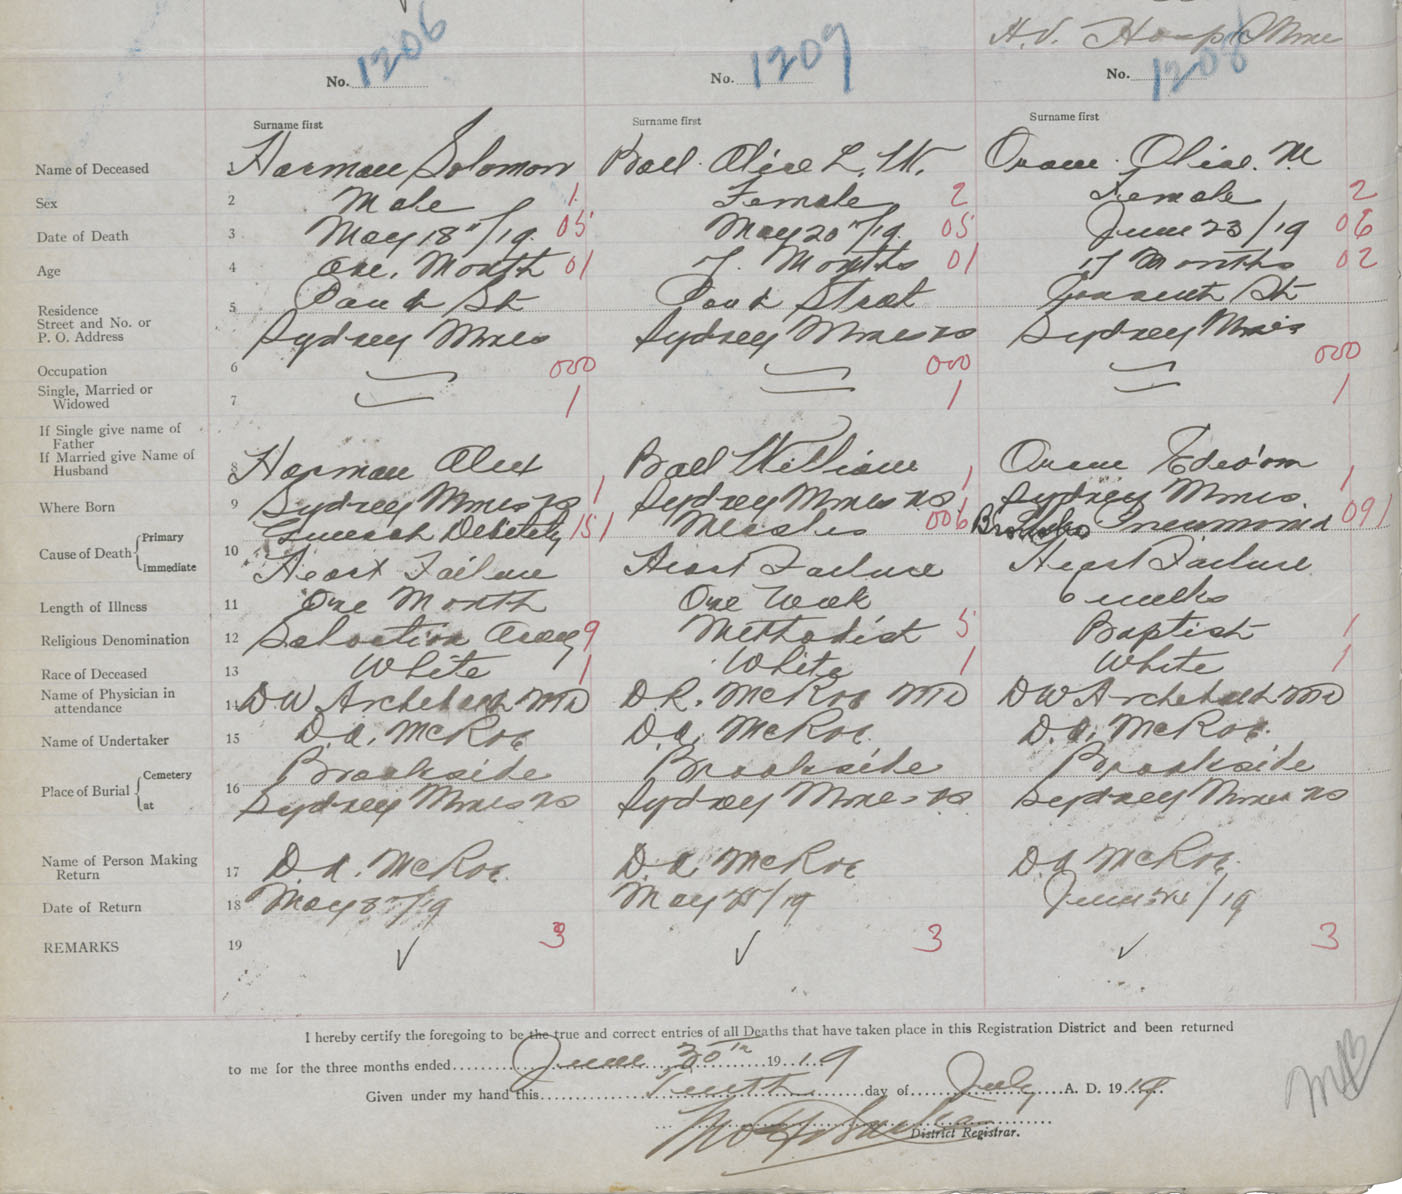 No. 1206
No. 1207
No. 1208
Surname first
Surname first
Surname first
Name of Deceased 1 Harman Solomon Ball Alice L. Oram Olive. M
Sex 2 Male 1 Female 2 Female 2
Date of Death 3 May 18"/19 05 May 20"/19 05 June 23/19 06
Age 4 One. Month 01 7. Months 01 17 Months 02
Residence 5 St Street St
Street and No. or
P. O. Address Sydney Mines Sydney Mines NS Sydney Mines
Occupation 6 000 000 000
Single, Married or
Widowed 7 1 1 1
If Single give name of
Father
If Married give Name of
Husband 8 Harman Alex Ball William 1 Oram 1
Where Born 9 Sydney Mines NS 1 Sydney Mines NS 1 Sydney Mines.
Cause of Death Primary Debility 151 Measles 006 Broncho Pneumonia 091
Immediate 10 Heart Failure Heart Failure Heart Failure
Length of Illness 11 One Month One Week 6 weeks
Religious Denomination 12 Salvation Army 9 Methodist 5 Baptist 1
Race of Deceased 13 White 1 White 1 White 1
Name of Physician in
attendance 14 DW Archibald MD D.R. McRae MD DW Archibald MD
Name of Undertaker 15 D.A. McRae D.A. McRae D.A. McRae
Place of Burial Cemetery Brookside Brookside Brookside
at 16 Sydney Mines NS Sydney Mines NS Sydney Mines NS
Name of Person Making
Return 17 D.A. McRae D.A McRae D.A McRae
Date of Return 18 May /19 May /19 June /19
REMARKS 19 3 3 3
I hereby certify the foregoing to be the true and correct entries of all Deaths that have taken place in this Registration District and been returned
to me for the three months ended June 30th 1919
Given under my hand this Tenth day of July A. D. 1919
District Registrar.